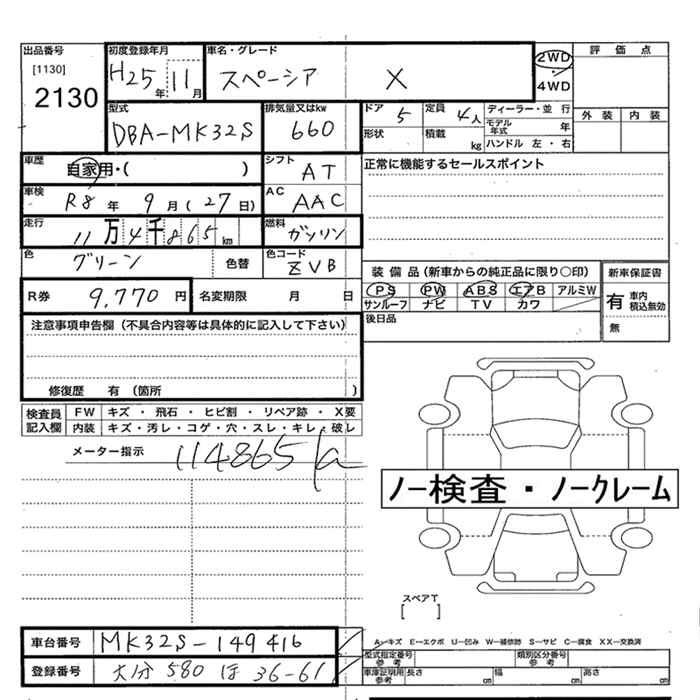 出品番号 初度登録年月 車名・グレード 2WD 評価点
[1130] H25年 11月 スペーシア X 4WD
2130 型式 排気量又はkw ドア 5 定員 4人 ディーラー・並 行 外装 内装
DBA-MK32S 660 形状 積載 kg モデル年式 年
ハンドル 左・右
車歴 自家用・( ) シフト AT 正常に機能するセールスポイント
車検 R8年 9月(27日) AC AAC
走行 11万4千865km 燃料 ガソリン
色 グリーン 色替 色コード ZVB 装備品(新車からの純正品に限り○印) 新車保証書
R券 9,770円 名変期限 月 日 PS PW ABS エアB アルミW 有 車内積込無効
サンルーフ ナビ TV カワ 無
注意事項申告欄(不具合内容等は具体的に記入して下さい) 後日品
修復歴 有 (箇所 )
検査員記入欄 FW キズ・飛石・ヒビ割・リペア跡・X要
内装 キズ・汚レ・コゲ・穴・スレ・キレ・破レ
メーター指示 114865
ノー検査・ノークレーム
スペアT
[ ]
車台番号 MK32S-149416 A-キズ E-エクボ U-凹み W-補修跡 S-サビ C-腐食 XX-交換済
型式指定番号参考 類別区分番号参考
登録番号 大分 580 ほ 36-61 車庫証明用参考 長さ cm 幅 cm 高さ cm